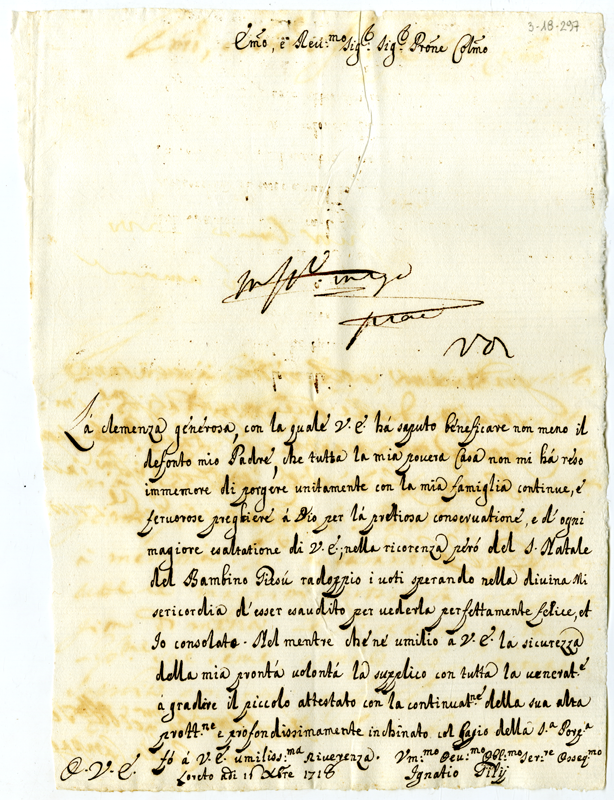 3-18-297
Emo, e Reu:mo Sig.r Sig.r Prone Colmo
La clemenza generosa, con la quale V. E. há saputo beneficare non meno il
defonto mio Padre, che tutta la mia povera Casa non mi há reso
immemore di porgere unitamente con la mia famiglia continue, e
feruorose preghiere á Dio per la pretiosa conseruatione, e d'ogni
magiore esaltatione di V. E., nella ricorenza peró del S. Natale
del Bambino Giesú radoppio i voti sperando nella divina Mi
sericordia d'esser esaudito per vederla perfettamente felice, et
Io consolato. Nel mentre che né umilio á V. E. la sicurezza
della mia pronta volontá la supplico con tutta la venerat.e
á gradire il piccolo attestato con la continuat.ne della sua alta
prott.ne e profondissimamente inchinato col Bagio della S.a Porp.a
fó á V. E. umiliss:ma Riverenza. Vm:mo Deu:mo Obl:mo Ser:re Osseq:mo
D. V. E. Loreto adi 16 Xbre 1718 Ignatio Filij